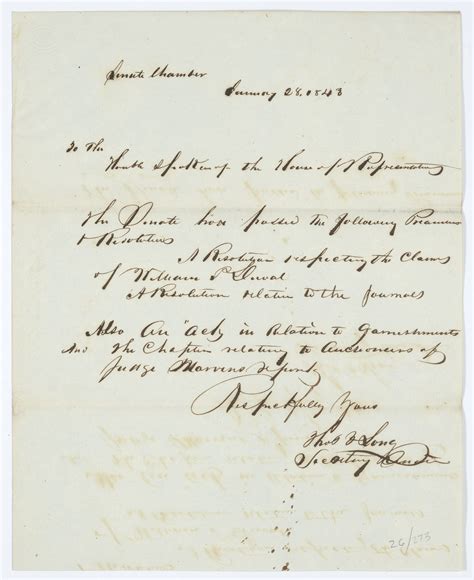 Senate Chamber
January 28. 1843
To the
Honble Speaker of the House of Representatives
The Senate have passed the following Preamers
& Resolutions
A Resolution respecting the Claims
of William P Duval
A Resolution relative to the Journals
Also An "act in Relation to Garnishments
And the Chapter relating to Auctioneers of
Judge Marvins
Respectfully Yours
Thos F Long
Secretary Senate
26/273